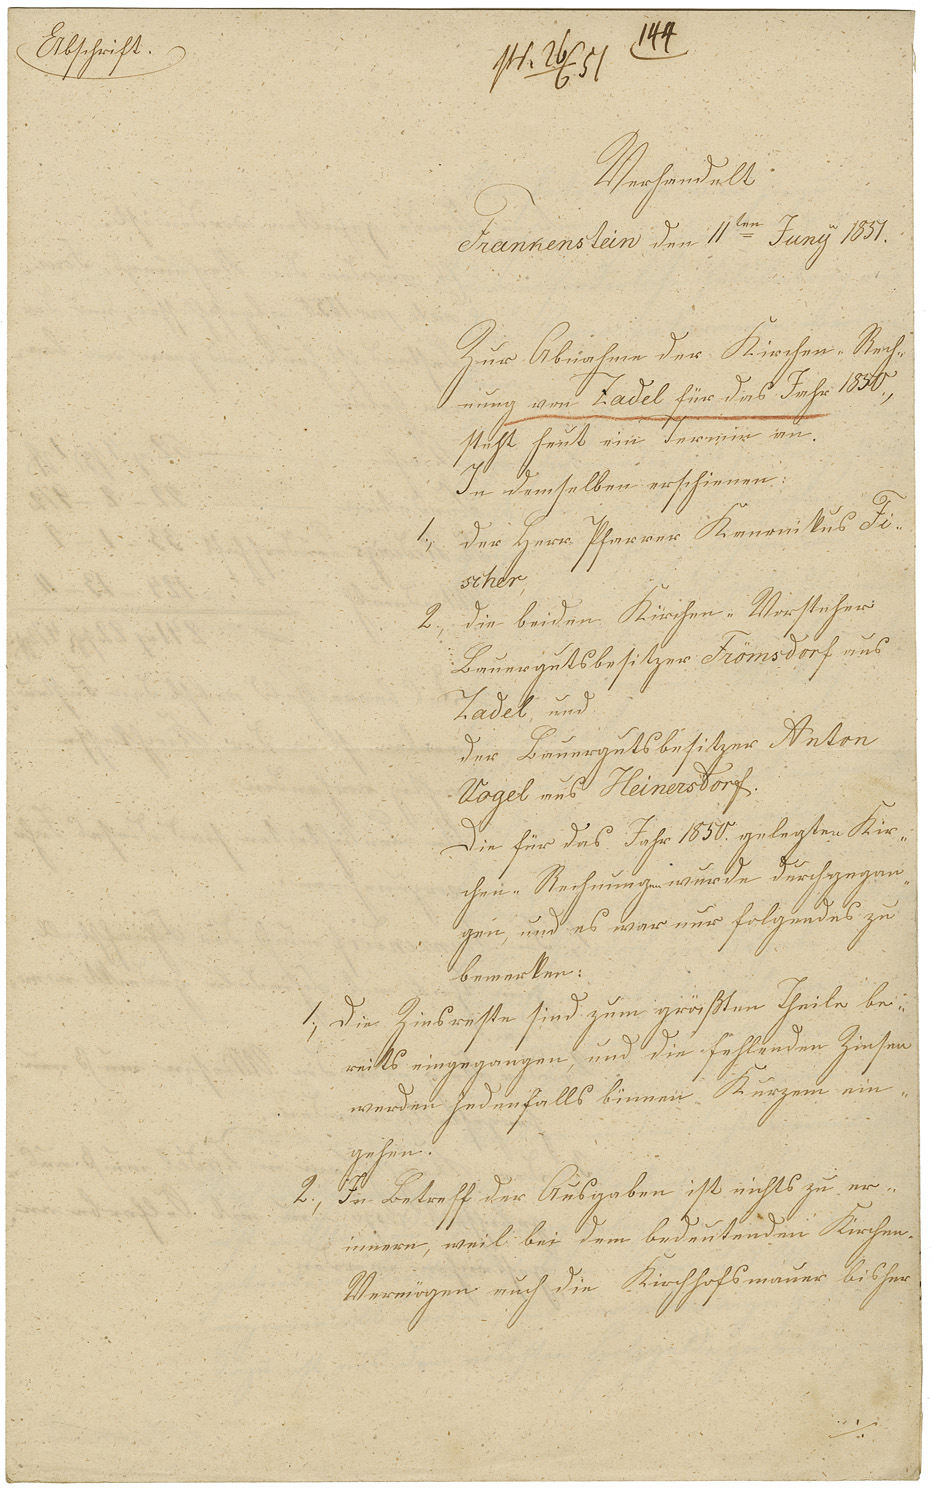 Abschrift.
144
26/6 51
Verhandelt
Frankenstein den 11ten Juny 1851.
Zur Abnahme der Kirchen-Rech-
nung von Zadel für das Jahr 1850.,
steht heut ein Termin an.
In demselben erschienen:
1., der Herr Pfarrer Kanonikus Fi-
scher,
2., die beiden Kirchen-Vorsteher
Bauergutsbesitzer Frömsdorf aus
Zadel, und
der Bauergutsbesitzer Anton
Vogel aus Heinersdorf.
Die für das Jahr 1850. gelegten Kir-
chen-Rechnungen wurde durchgegan-
gen, und es war nur folgendes zu
bemerken:
1., Die Zinsreste sind zum größten Theile be-
reits eingegangen, und die fehlenden Zinsen
werden jedenfalls binnen Kurzem ein-
gehen.
2., In Betreff der Ausgaben ist nichts zu er-
innern, weil bei dem bedeutenden Kirchen-
Vermögen auch die Kirchhofsmauer bisher